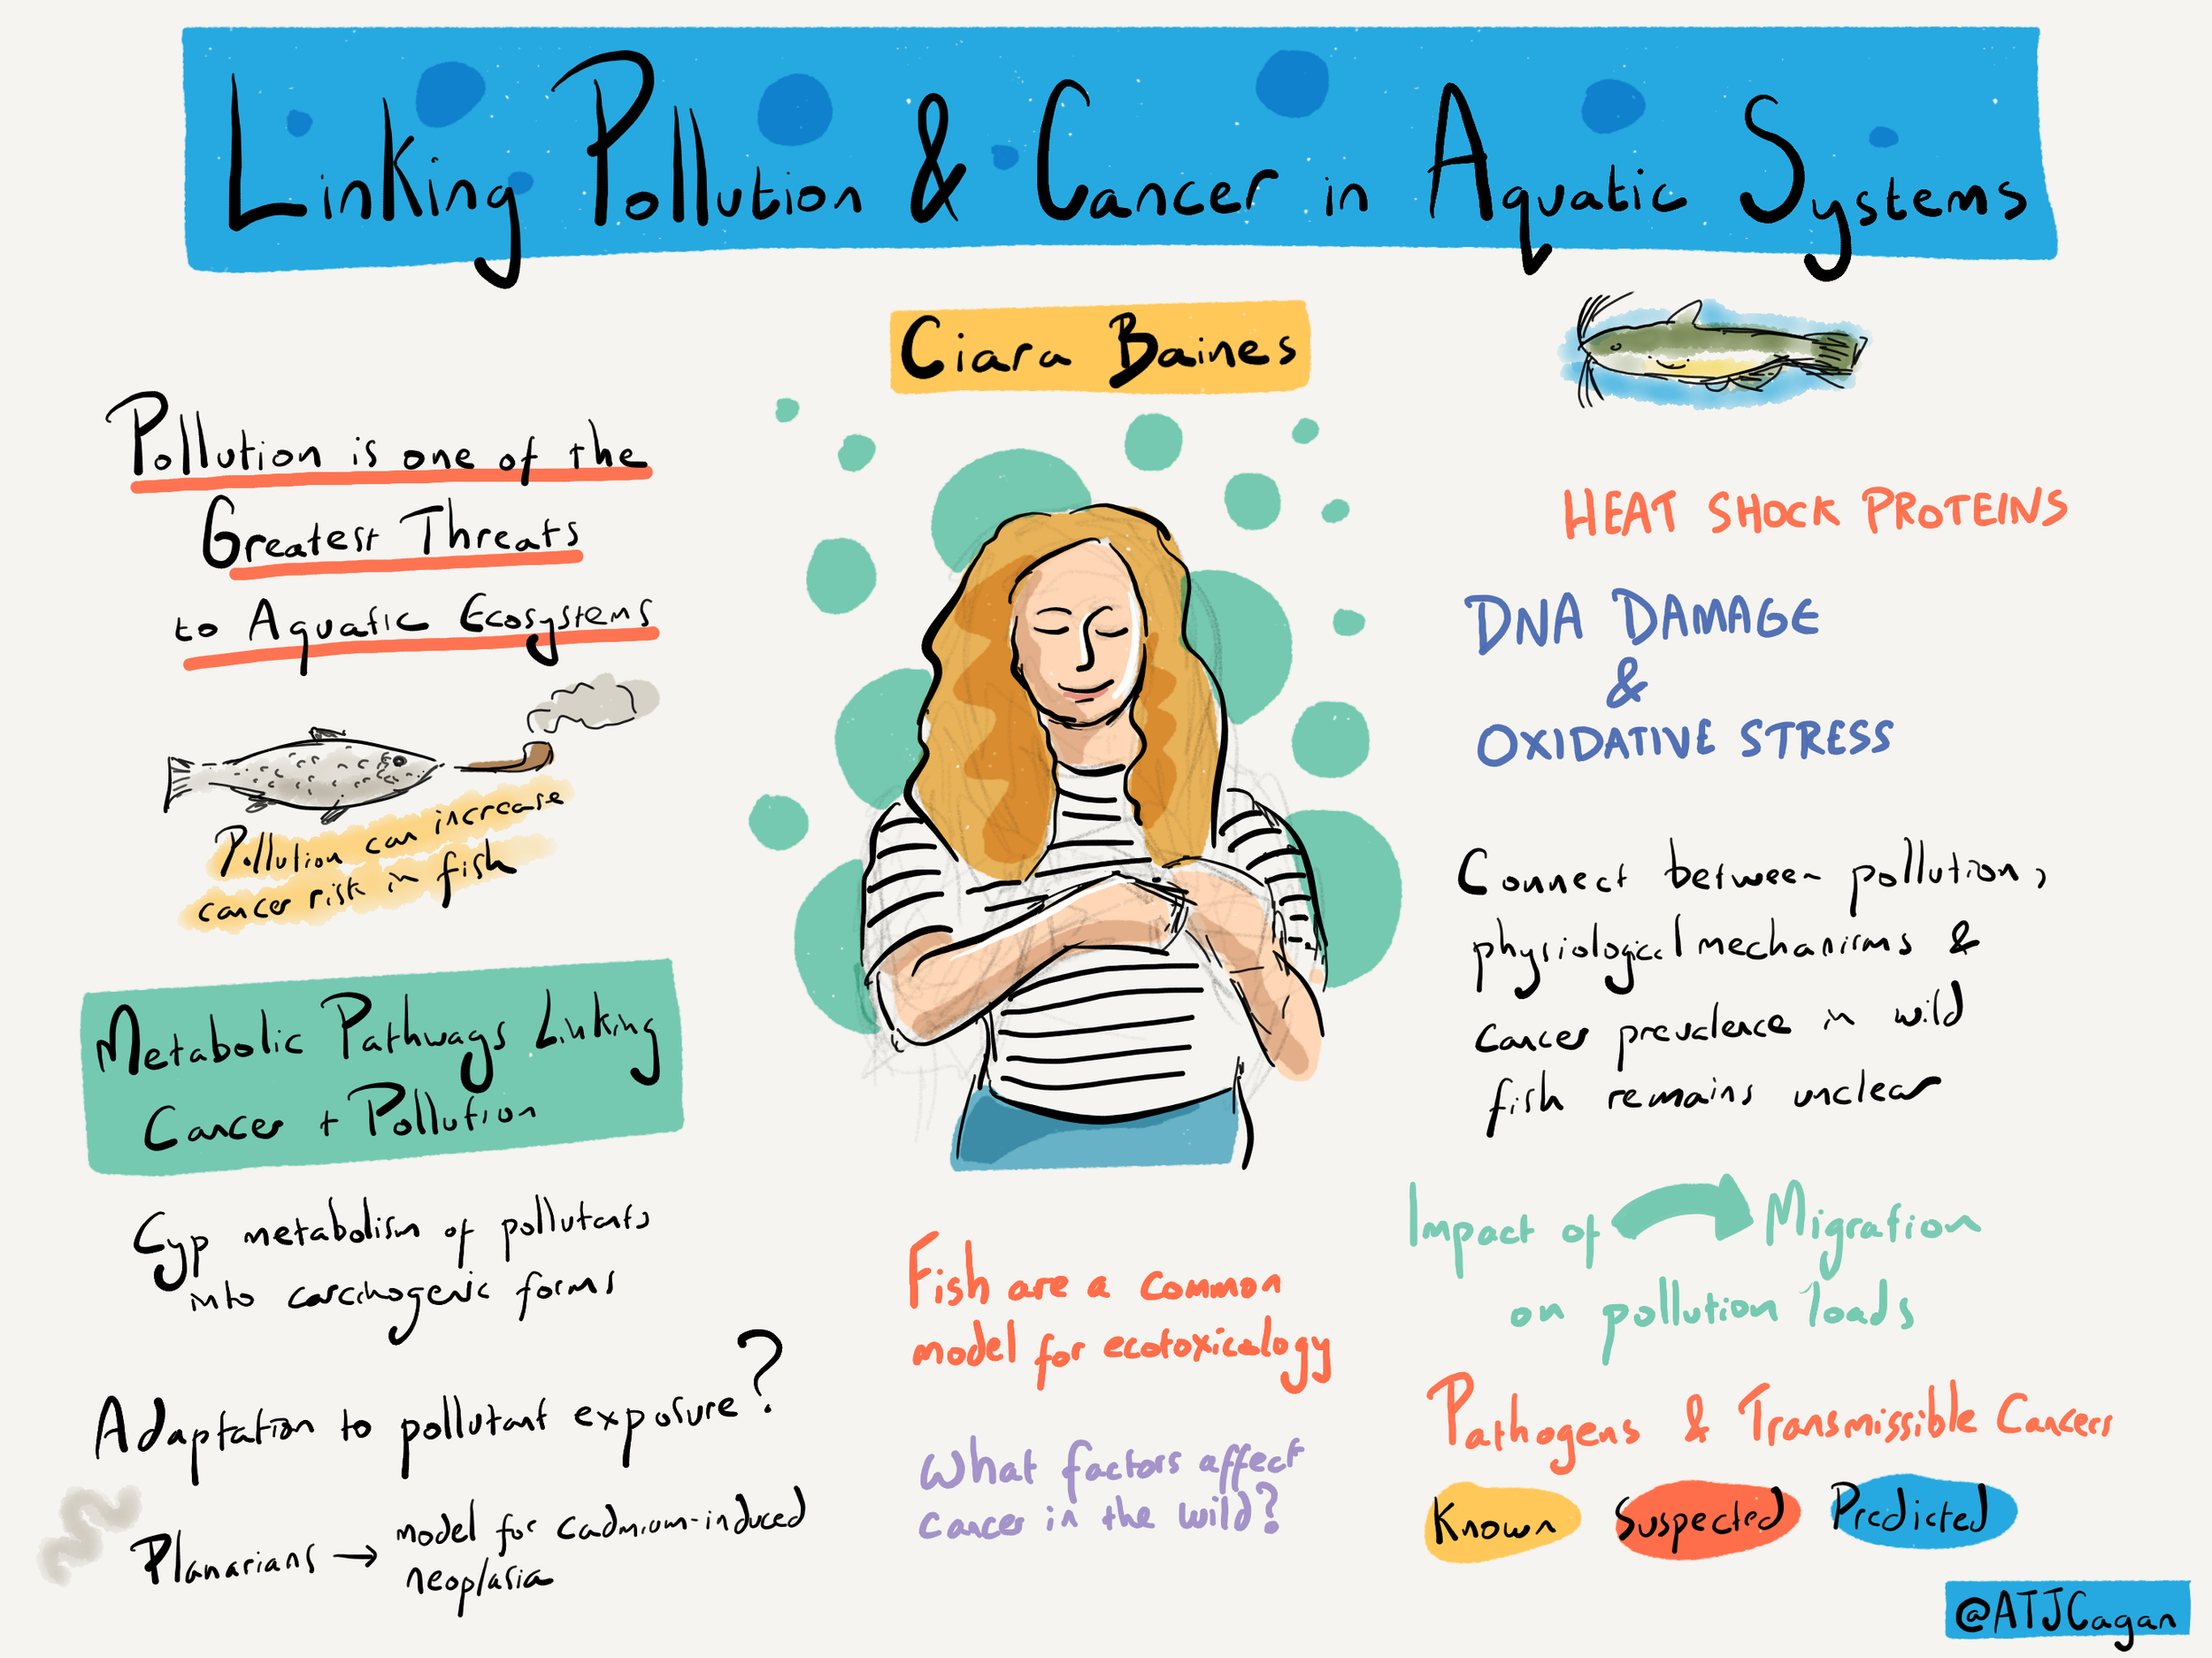 Linking Pollution & Cancer in Aquatic Systems
Ciara Baines
Pollution is one of the
Greatest Threats
to Aquatic Ecosystems
Pollution can increase
cancer risk in fish
Metabolic Pathways Linking
Cancer + Pollution
Cyp metabolism of pollutants
into carcinogenic forms
Adaptation to pollutant exposure?
Planarians → model for cadmium-induced
neoplasia
Fish are a common
model for ecotoxicology
What factors affect
cancer in the wild?
HEAT SHOCK PROTEINS
DNA DAMAGE
&
OXIDATIVE STRESS
Connect between pollution,
physiological mechanisms &
cancer prevalence in wild
fish remains unclear
Impact of Migration
on pollution loads
Pathogens & Transmissible Cancers
Known Suspected Predicted
@ATJCagan